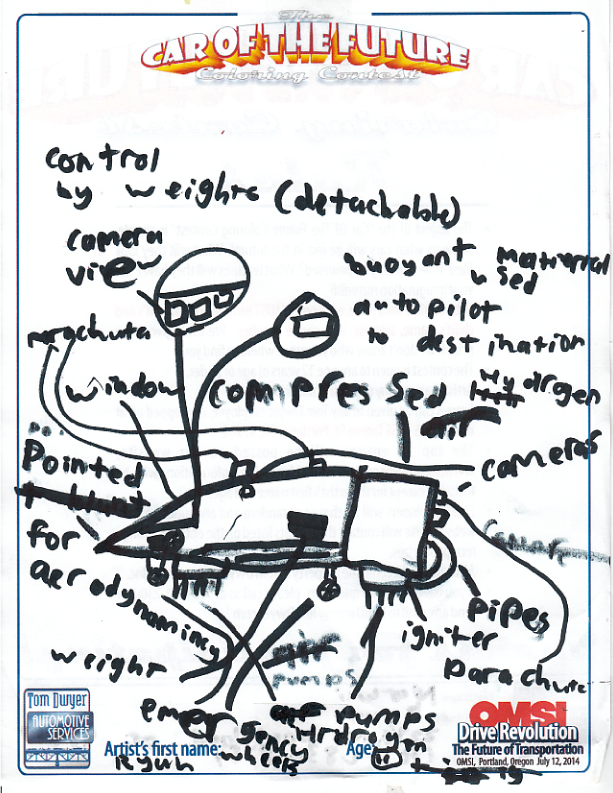 The
CAR OF THE FUTURE
Coloring Contest
control
by weights (detachable)
camera
view
buoyant material
used
autopilot
to destination
parachute
window
compressed
Hydrogen
air
Pointed
cameras
for
aerodynamincy
weight
air
pumps
pipes
igniter
parachute
emergency
wheels
pumps
Hydrogen
Tom Dwyer
AUTOMOTIVE
SERVICES
Artist's first name:
Age:
11
OMSI
Drive Revolution
The Future of Transportation
OMSI, Portland, Oregon July 12, 2014